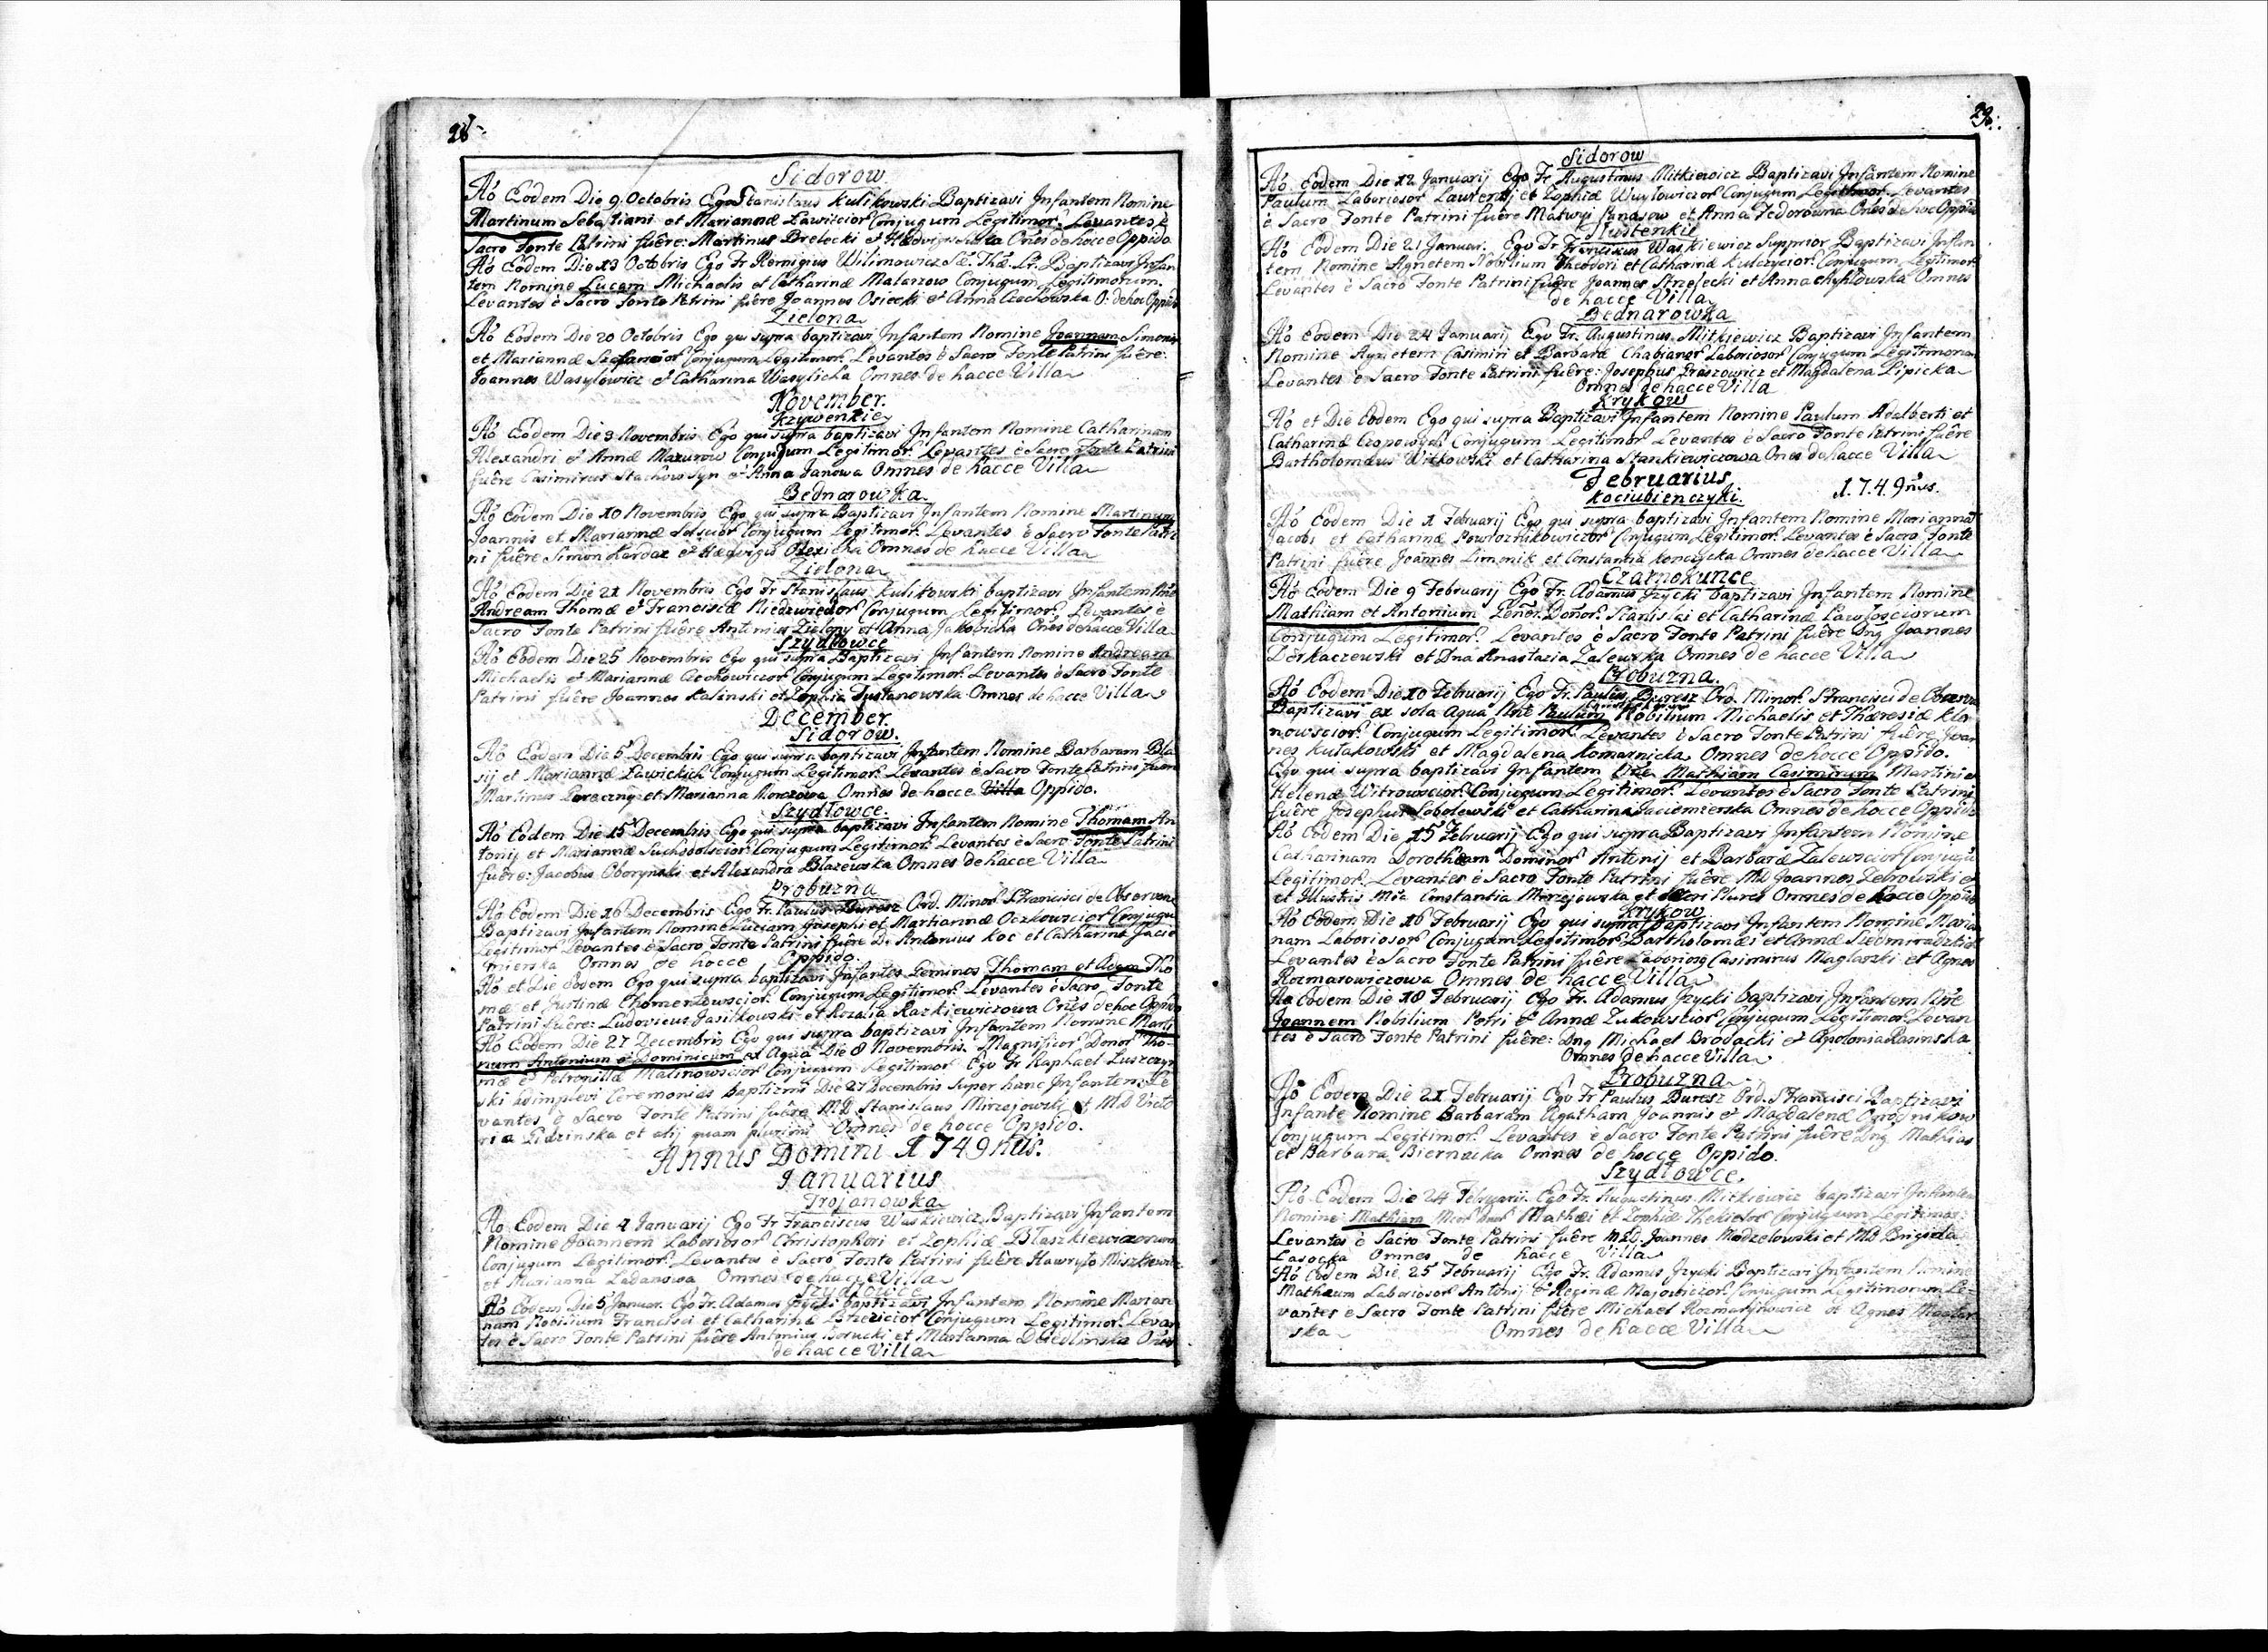 28
Sidorow
Aó Eodem Die 9 Octobris Ego Stanislaus Kulikowski Baptizavi Infantem Nomine
Martinum Sebastiani et Mariannæ Ławiscior Conjugum Legitimor. Levantes è
Sacro Fonte Patrini fuêre: Martinus Brelecki et Hedvigis Omes de hocce Oppido
Aó Eodem Die 13 Octobris Ego Fr Remigius Wilimowicz Sæ. Thæ. Lr. Baptizavi Infan
tem Nomine Lucam Michaelis et Catharinæ Malarzow Conjugum Legitimorum.
Levantes è Sacro Fonte Patrini fuêre Joannes Osiecki et Anna Czechowska O. de hoc Oppido
Zielona
Aó Eodem Die 20 Octobris Ego qui supra baptizavi Infantem Nomine Joannem Simonis
et Mariannæ Conjugum Legitimor. Levantes è Sacro Fonte Patrini fuêre:
Joannes Wasylowicz et Catharina Wasylicha Omnes de hacce Villa
November.
Krzywenkie
Aó Eodem Die 3 Novembris Ego qui supra baptizavi Infantem Nomine Catharinam
Alexandri et Annæ Mazurow Conjugum Legitimor. Levantes è Sacro Fonte Patrini
fuêre Casimirus Stachow Syn et Anna Janowa Omnes de hacce Villa
Bednarowka
Aó Eodem Die 10 Novembris Ego qui supra Baptizavi Infantem Nomine Martinum
Joannis et Mariannæ Conjugum Legitimor. Levantes è Sacro Fonte Patri
ni fuêre Simon Kardaz et Hedvigis Olexicha Omnes de hacce Villa
Zielona
Aó Eodem Die 21 Novembris Ego Fr Stanislaus Kulikowski baptizavi Infantem Nne
Andream Thomæ et Franciscæ Niedzwiedor Conjugum Legitimor. Levantes è
Sacro Fonte Patrini fuêre Antonius Zielony et Anna Jakobicha Ones de hacce Villa
Szydłowce
Aó Eodem Die 25 Novembris Ego qui supra Baptizavi Infantem Nomine Andream
Michaelis et Mariannæ Czechowiczor Conjugum Legitimor. Levantes è Sacro Fonte
Patrini fuêre Joannes Kalinski et Zophia Tustanowska Omnes de hacce Villa
December.
Sidorow.
Aó Eodem Die 5 Decembris Ego qui supra baptizavi Infantem Nomine Barbaram Bla
sij et Mariannæ Ławickich Conjugum Legitimor. Levantes è Sacro Fonte Patrini fuere
Martinus et Marianna Omnes de hocce Villa Oppido.
Szydłowce.
Aó Eodem Die 15 Decembris Ego qui supra baptizavi Infantem Nomine Thomam An
tonij et Mariannæ Suchodolscior. Conjugum Legitimor. Levantes è Sacro Fonte Patrini
fuêre: Jacobus Oborynski et Alexandra Blazewska Omnes de hacce Villa
Probuzna
Aó Eodem Die 16 Decembris Ego Fr. Paulus Buresz Ord. Minor. S Francisci de Observan
Baptizavi Infantem Nomine Luciam Josephi et Mariannæ Oczkowscior Conjugum
Legitimor. Levantes è Sacro Fonte Patrini fuêre D. Antonius Koc et Catharina Jacie
mierska Omnes de hocce Oppido.
Aó et Die Eodem Ego qui supra baptizavi Infantes Geminos Thomam et Adam Tho
mæ et Justinæ Chomentowscior. Conjugum Legitimor. Levantes è Sacro Fonte
Patrini fuêre: Ludovicus Jasilkowski et Rozalia Razkiewiczowa Ones de hoc Oppido
Aó Eodem Die 27 Decembris Ego qui supra baptizavi Infantem Nomine Marti
num Antonium et Dominicum ex Aqua Die 8 Novembris. Magnificor. Donor. Tho-
mæ et Petronillæ Malinowscior Conjugum Legitimor Ego Fr Raphael Łuszczyn
ski adimplevi Ceremonias baptizmi Die 27 Decembris super hanc Infantem: Le
vantes è Sacro Fonte Patrini fuêre M.D Stanislaus Mirzejowski et M.D Victo
ria Lidzinska et alij quam plurimi Omnes de hocce Oppido.
Annus Domini 1749nus.
Januarius
Trojanowka
Aó Eodem Die 4 Januarij Ego Fr Franciscus Waskiewicz Baptizavi Infantem
Nomine Joannem Laboriosor Christophori et Zophiæ Błaszkiewiczorum
Conjugum Legitimor. Levantes è Sacro Fonte Patrini fuêre Hawryło Miszkiewicz
et Marianna Ladanowa Omnes de hacce Villa
Szydłowce
Aó Eodem Die 5 Januar. Ego Fr. Adamus Jzycki baptizavi Infantem Nomine Marian
nam Nobilium Francisci et Catharinæ Conjugum Legitimor. Levan
tes è Sacro Fonte Patrini fuêre Antonius Borucki et Marianna Ones
de hacce Villa
29.
Sidorow
Aó Eodem Die 12 Januarij Ego Fr Augustinus Mitkiewicz Baptizavi Infantem Nomine
Paulum Laboriosor Laurentij et Zophiæ Wuylowiczor Conjugum Legitimor. Levantes
è Sacro Fonte Patrini fuêre Matwij Panasow et Anna Fedorowna Ones de hoc Oppido
Tłustenkie
Aó Eodem Die 21 Januar. Ego Fr Franciscus Waskiewicz Supprior Baptizavi Infan
tem Nomine Agnetem Nobilium Theodori et Catharinæ Kulczycior. Conjugum Legitimor.
Levantes è Sacro Fonte Patrini fuêre Joannes Strzelecki et Anna Omnes
de hacce Villa
Bednarowka
Aó Eodem Die 24 Januarij Ego Fr. Augustinus Mitkiewicz Baptizavi Infantem
Nomine Agnetem Casimiri et Barbaræ Chabianor Laboriosor Conjugum Legitimorum
Levantes è Sacro Fonte Patrini fuêre: Josephus Praszowicz et Magdalena Lipicka
Omnes de hacce Villa
Krykow
Aó et Die Eodem Ego qui supra Baptizavi Infantem Nomine Paulum Adalberti et
Catharinæ Czopowych Conjugum Legitimor Levantes è Sacro Fonte Patrini fuêre
Bartholomæus Witkowski et Catharina Stankiewiczowa Ones de hacce Villa
Februarius
Kociubienczyki. 1.7.4.9nus.
Aó Eodem Die 1 Februarij Ego qui supra baptizavi Infantem Nomine Mariannam
Jacobi et Catharinæ Powroznikowiczor Conjugum Legitimor. Levantes è Sacro Fonte
Patrini fuêre Joannes Limonik et Constantia Konczycka Omnes de hacce Villa
Czarnokunce
Aó Eodem Die 9 Februarij Ego Fr. Adamus Jzycki baptizavi Infantem Nomine
Mathiam et Antonium Gener. Donor. Stanislai et Catharinæ Zawłosciorum
Conjugum Legitimor. Levantes è Sacro Fonte Patrini fuêre Dnus Joannes
Derkaczewski et Dna Anastazia Zalewska Omnes de hacce Villa
Probuzna.
Aó Eodem Die 10 Februarij Ego Fr. Paulus Buresz Ord. Minor. S Francisci de Observan
Baptizavi ex sola Aqua Nne Paulum Nobilium Michaelis et Theresiæ Kla
nowscior. Conjugum Legitimor. Levantes è Sacro Fonte Patrini fuêre Joan
nes Kulakowski et Magdalena Komarnicka Omnes de hocce Oppido.
Ego qui supra baptizavi Infantem Nne Mathiam Casimirum Martini et
Helenæ Witrowscior. Conjugum Legitimor. Levantes è Sacro Fonte Patrini
fuêre Josephus Sobolewski et Catharina Jaciemierska Omnes de hocce Oppido
Aó Eodem Die 15 Februarij Ego qui supra Baptizavi Infantem Nomine
Catharinam Dorotheam Dominor Antonij et Barbaræ Zalewscior Conjugu
Legitimor. Levantes è Sacro Fonte Patrini fuêre MD Joannes Zebrowski et
et Illustris Mca Constantia Mierzejowska et Plures Omnes de hocce Oppido
Krykow
Aó Eodem Die 16 Februarij Ego qui supra baptizavi Infantem Nomine Marian
nam Laboriosor Conjugum Legitimor Bartholomæi et Annæ Siedmiradzkich
Levantes è Sacro Fonte Patrini fuêre Laboriosg Casimirus Maglarski et Agnes
Rozmarowiczowa Omnes de hacce Villa
Aó Eodem Die 18 Februarij Ego Fr. Adamus Jzycki baptizavi Infantem Nne
Joannem Nobilium Petri et Annæ Zukowscior Conjugum Legitimor Levan
tes è Sacro Fonte Patrini fuêre: Dng Michael Brodacki et Apolonia Rasinska
Omnes de hacce Villa
Probuzna
Aó Eodem Die 21 Februarij Ego Fr Paulus Buresz Ord. S Francisci Baptizavi
Infante Nomine Barbaram Agatham Joannis et Magdalenæ Ogrodnikow
Conjugum Legitimor. Levantes è Sacro Fonte Patrini fuêre Dng Mathias
et Barbara Biernacka Omnes de hocce Oppido.
Szydłowce.
Aó Eodem Die 24 Februarij Ego Fr. Augustinus Mitkiewicz baptizavi Infantem
Nomine Mathiam Mathæi et Zophiæ Conjugum Legitimor:
Levantes è Sacro Fonte Patrini fuêre M.D. Joannes Modzelowski et MD Brigida
Lasocka Omnes de hacce Villa
Aó Eodem Die 25 Februarij Ego Fr. Adamus Jzycki Baptizavi Infantem Nomine
Mathæum Laboriosor Antonij et Reginæ Majowiczor. Conjugum Legitimorum Le-
vantes è Sacro Fonte Patrini fuêre Michael Rozmarynowicz et Agnes Maglar
ska Omnes de hacce Villa